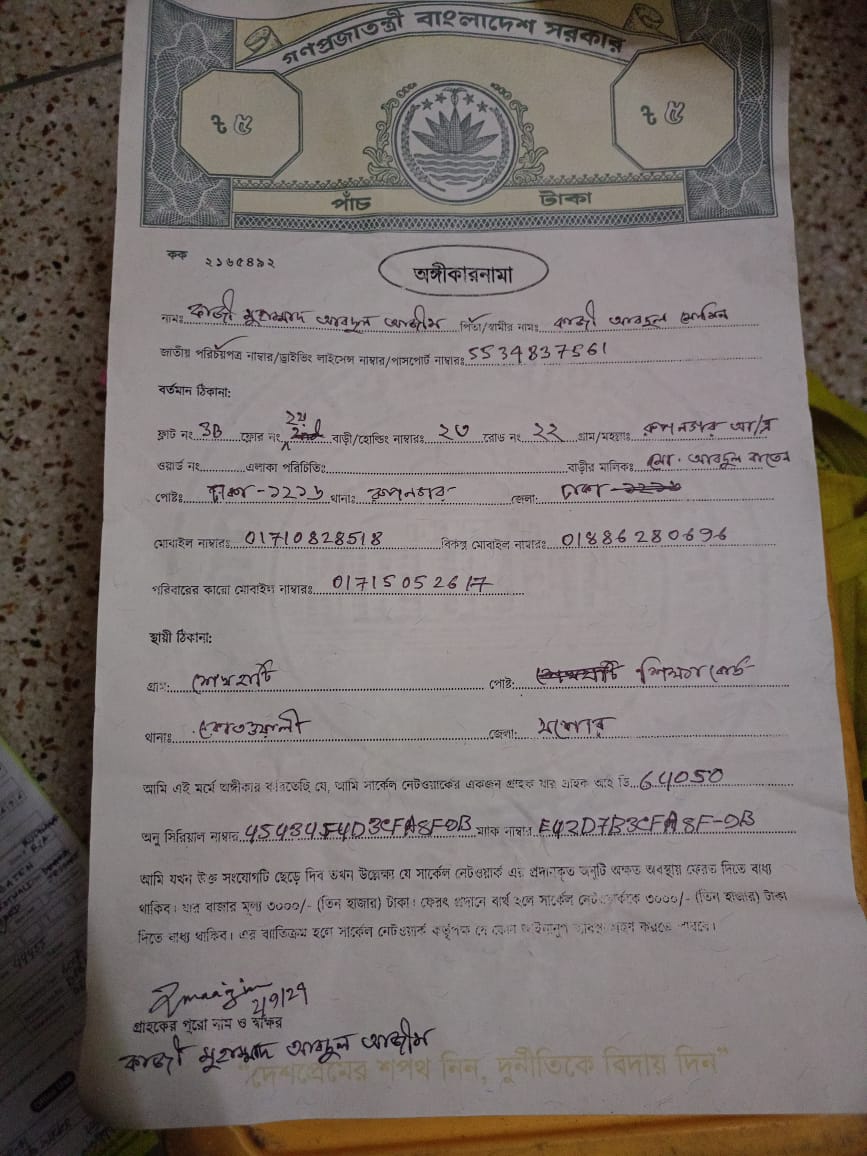 গণপ্রজাতন্ত্রী বাংলাদেশ সরকার
৳ ৫
৳ ৫
পাঁচ টাকা
কক ২১৬৫৪৯২
অঙ্গীকারনামা
নামঃ কাজী মুহাম্মাদ আবদুল আজীম পিতা/স্বামীর নামঃ কাজী আবদুল মোমিন
জাতীয় পরিচয়পত্র নাম্বার/ড্রাইভিং লাইসেন্স নাম্বার/পাসপোর্ট নাম্বারঃ 5534837561
বর্তমান ঠিকানা:
ফ্লাট নং 3B ফ্লোর নং ২য় বাড়ী/হোল্ডিং নাম্বারঃ ২৩ রোড নং ২২ গ্রাম/মহল্লাঃ রূপনগর আ/এ
ওয়ার্ড নং এলাকা পরিচিতিঃ বাড়ীর মালিকঃ মো. আবদুল বাতেন
পোষ্টঃ ঢাকা-১২১৬ থানাঃ রূপনগর জেলা: ঢাকা
মোবাইল নাম্বারঃ 01710828518 বিকল্প মোবাইল নাম্বারঃ 01886280696
পরিবারের কারো মোবাইল নাম্বারঃ 01715052617
স্থায়ী ঠিকানা:
গ্রাম: শেখহাটি পোষ্ট: শিক্ষাবোর্ড
থানাঃ কোতওয়ালী জেলা: যশোর
আমি এই মর্মে অঙ্গীকার করিতেছি যে, আমি সার্কেল নেটওয়ার্কের একজন গ্রাহক যার গ্রাহক আই ডি 64050
অনু সিরিয়াল নাম্বার 4543454D3CFA8F0B ম্যাক নাম্বার E42D7B3CFA8F-0B
আমি যখন উক্ত সংযোগটি ছেড়ে দিব তখন উল্লেক্ষ্য যে সার্কেল নেটওয়ার্ক এর প্রদানকৃত অনুটি অক্ষত অবস্থায় ফেরত দিতে বাধ্য
থাকিব। যার বাজার মূল্য ৩০০০/- (তিন হাজার) টাকা। ফেরৎ প্রদানে ব্যর্থ হলে সার্কেল নেটওয়ার্ককে ৩০০০/- (তিন হাজার) টাকা
দিতে বাধ্য থাকিব। এর ব্যতিক্রম হলে সার্কেল নেটওয়ার্ক কর্তৃপক্ষ যে কোন আইনানুগ ব্যবস্থা গ্রহন করতে পারবে।
2/9/24
গ্রাহকের পুরো নাম ও স্বাক্ষর
কাজী মুহাম্মাদ আবদুল আজীম
"দেশপ্রেমের শপথ নিন, দুর্নীতিকে বিদায় দিন"